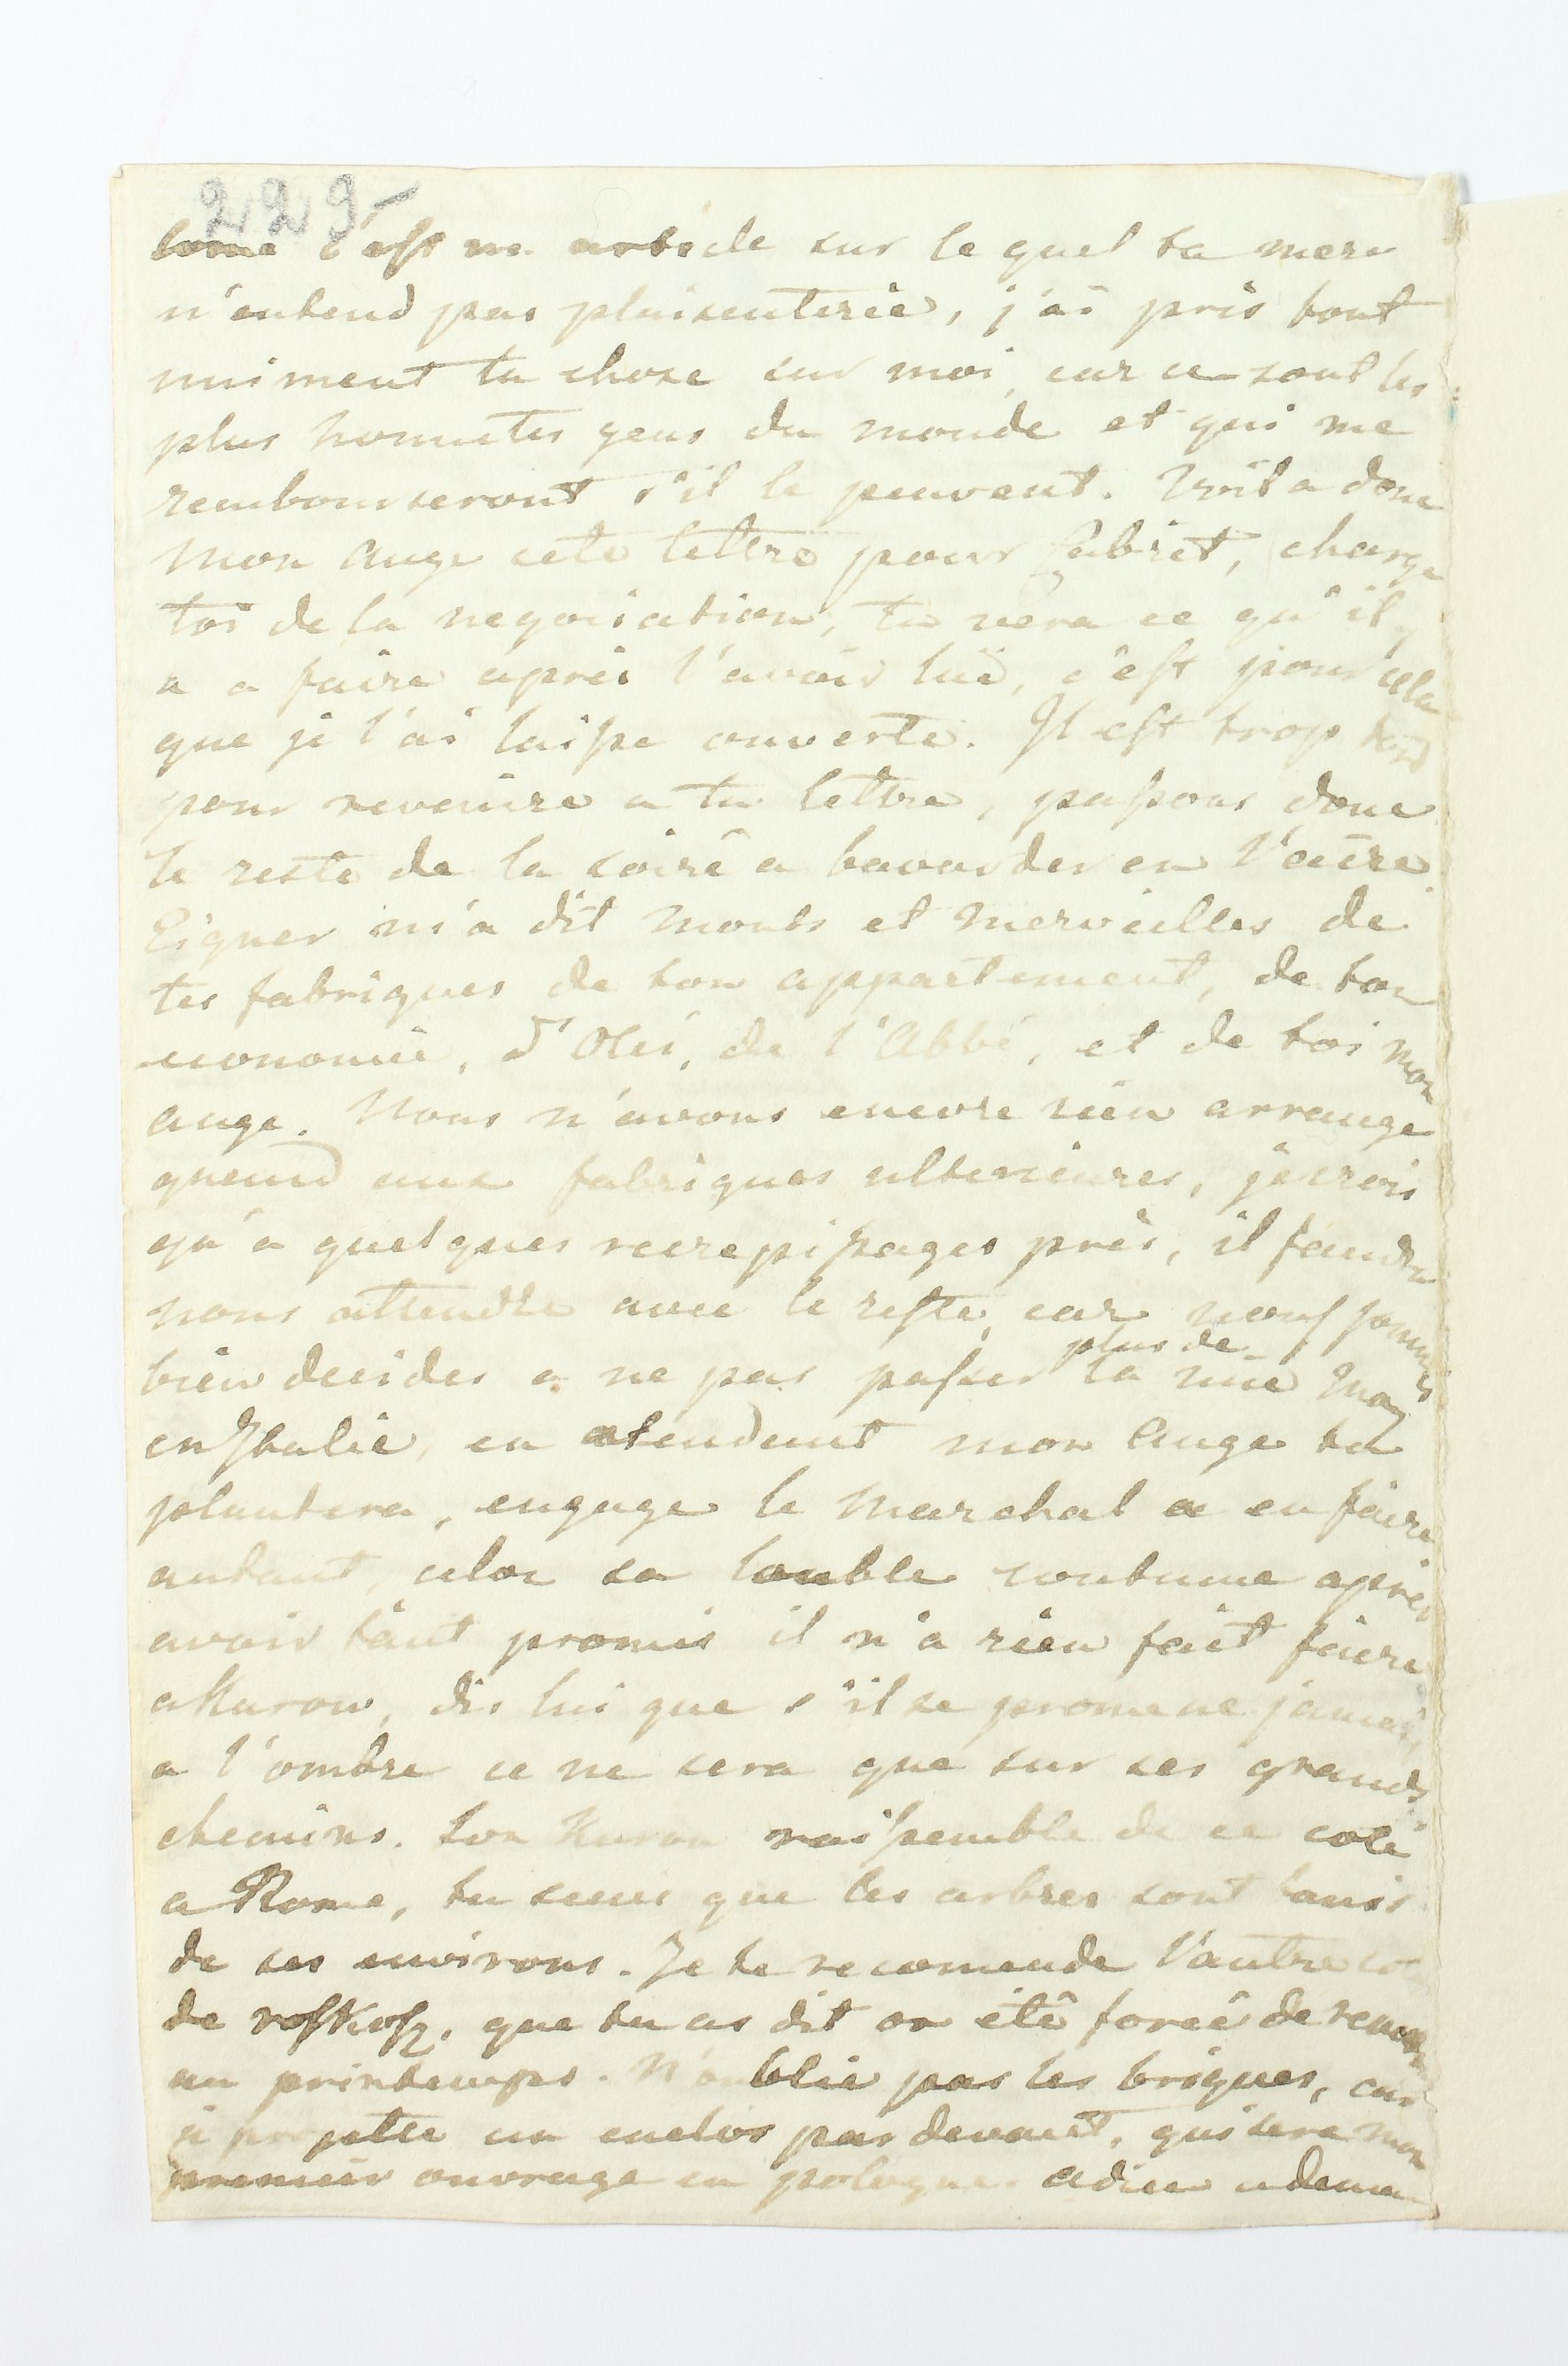 229-
come c'est un article sur le quel ta mere
n'entend pas plaisenterie, j'ai pris tout
uniment la chose sur moi, car ce sont les
plus honnetes gens du monde et qui me
rembourseront s'il le peuvent. Voila donc
mon ange cete lettre pour Cabret, charge
toi de la negociation, tu vera ce qu'il y
a a faire après l'avoir luë, c'est pour cela
que je l'ai laisse ouverte. Il est trop tard
pour revenire a ta lettre, passons donc
le reste de la soirê a bavarder en l'aire.
Eigner m'a dit monts et merveilles de
tes fabriques de ton appartement, de ton
economie, d'Olei, de l'Abbé, et de toi mon
ange. Nous n'avons encore rien arrange
quend aux fabriques ulterieures, je crois
qu'a quelques recrepissages près, il faudra
nous attendre avec le reste, car nous sommes
bien decides a ne pas passer plus de la mie May
en Italie, en atendent mon Ange tu
plantera, engage le Marchal a en faire
autant, celon sa louble coutume après
avoir tânt promis il n'a rien fait faire
a Kurow, dis lui que s'il se promene jamais,
a l'ombre ce ne sera que sur ses grands
chemins. Son Kurow raissemble de ce coté
a Rome, tu seais que les arbres sont banis
de ses environs. Je te recomende l'autre
de rosKosz, que tu as dit on étê forcê de
au printemps. N'oublie pas les briques, car
je projette un enclos par devant, qui sera mon
premier ouvrage en pologne. adieu a demain